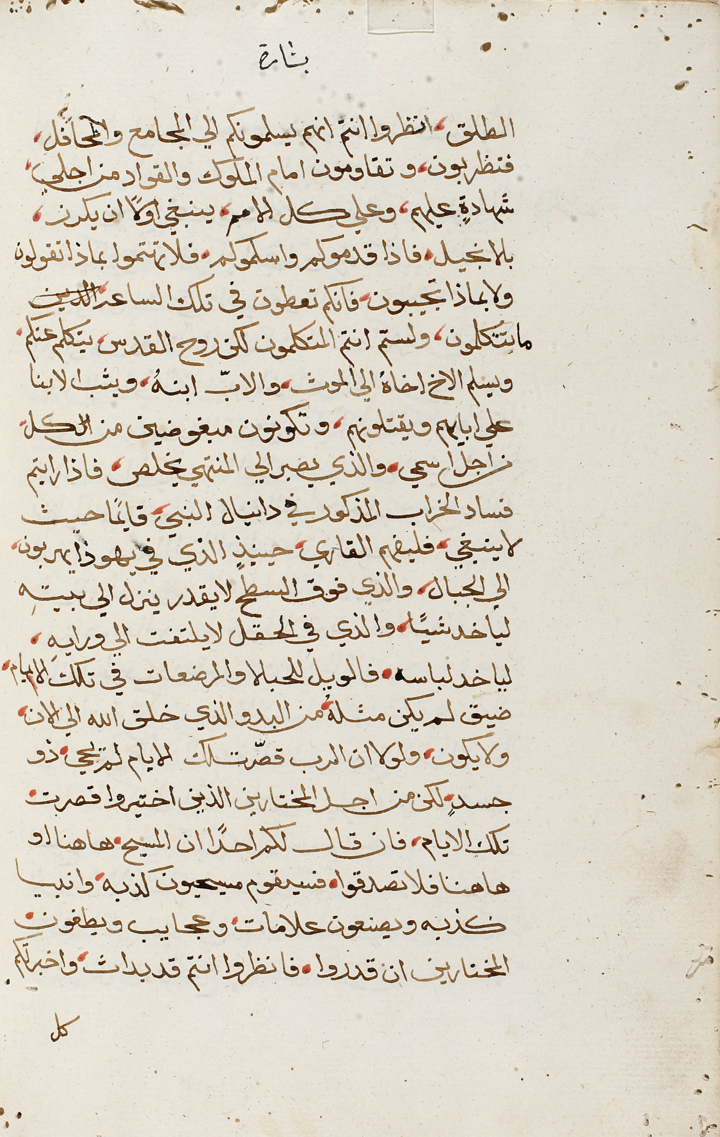 بشارة
الطلق، انظروا انتم انهم يسلمونكم الي المجامع والمحافل،
فتظربون، وتقاومون امام الملوك والقواد من اجلي،
شهادةٍ عليهم، وعلي كل الامم، ينبغي اولًا ان يكرز،
بالانجيل، فاذا قدموكم واسلموكم، فلا تهتموا بماذا تقولون
ولا بماذا تجيبون، فانكم تعطون في تلك الساعه
ما تتكلمون، ولستم انتم المتكلمون لكن روح القدس، يتكلم عنكم،
ويسلم الاخ اخاهُ الي الموت، والابّ ابنهُ، ويثب الابنا
علي ابايهم ويقتلونهم، وتكونون مبغوضين من الكل،
من اجل اسمي، والذي يصبر الي المنتهي يخلص، فاذا رايتم
فساد الخراب المذكور في دانيال النبي، قايمًا حيث
لا ينبغي، فليفهم القاري، حينيذٍ الذي في يهوذا يهربون،
الي الجبال، والذي فوق السطح لا يقدر ينزل الي بيتهِ
لياخد شيًا، والذي في الحقل لا يلتفت الي ورايهِ،
لياخد لباسه، فالويل للحبالا والمرضعات في تلك الايام،
ضيق لم يكن مثلهُ من البدو الذي خلق الله الي الان،
ولا يكون، ولولا ان الرب قصّر تلك الايام لم يحيي، ذو
جسدٍ، لكن من اجل المختارين الذين اختيروا قصرت،
تلك الايام، فان قال لكم احدًا ان المسيح، هاهنا او
هاهنا فلا تصدقوا، فسيقوم مسيحيون كذبه، وانبيا
كذبه ويصنعون علامات، وعجايب ويطغون،
المختارين ان قدروا، فانظروا انتم قد بدات، واخبرتكم
كل